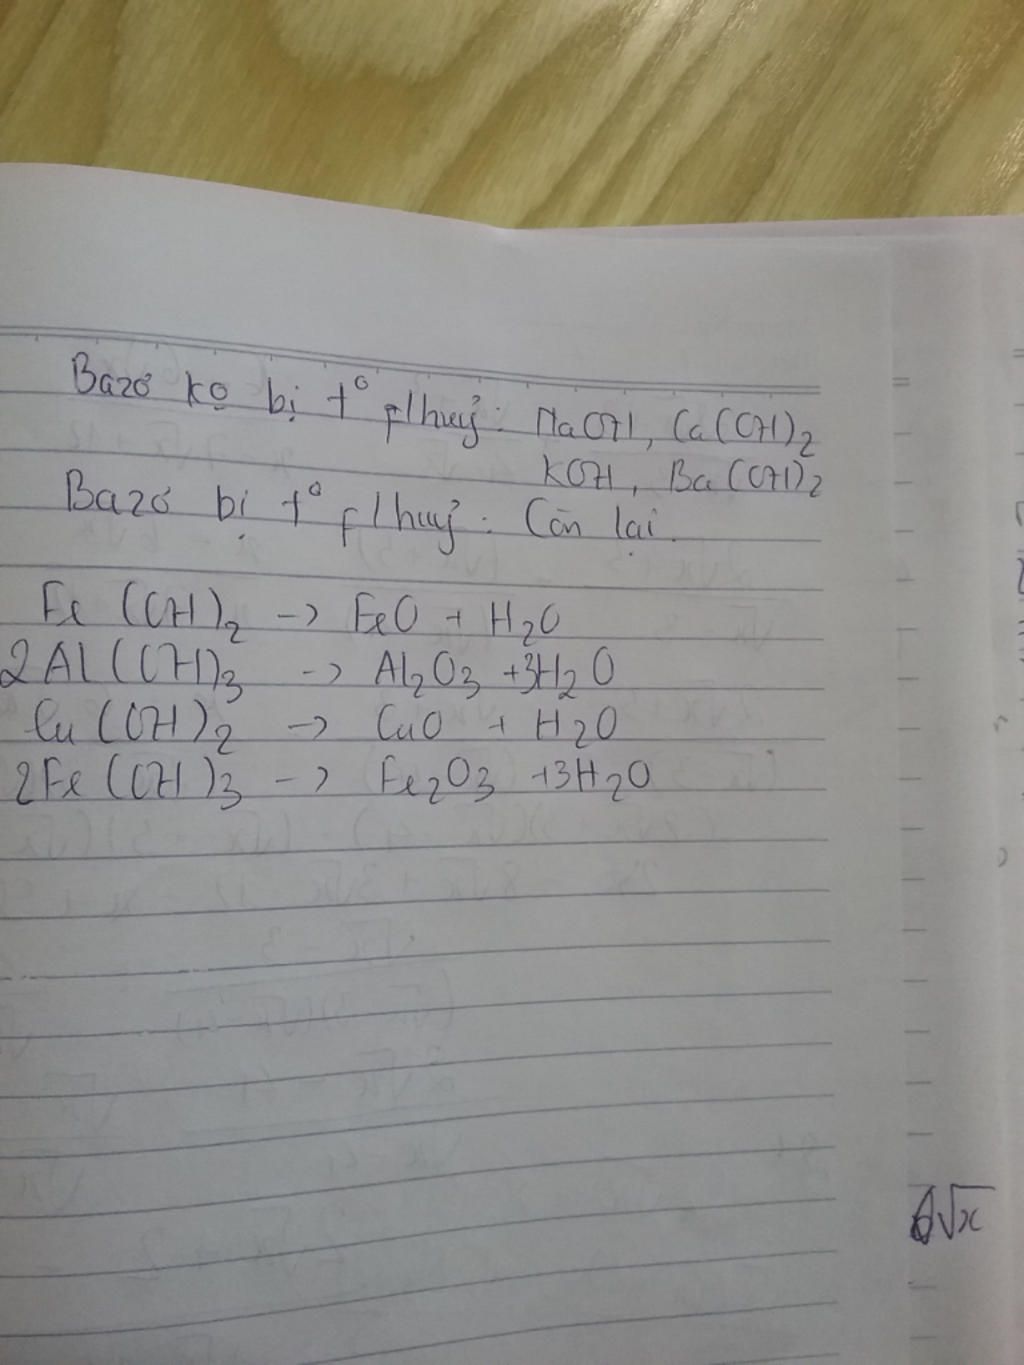 Bazơ kọ bị t° p/huỷ: NaOH, Ca(OH)₂
KOH, Ba(OH)₂
Bazơ bị t° p/huỷ: Còn lại.
Fe(OH)₂ -> FeO + H₂O
2Al(OH)₃ -> Al₂O₃ +3H₂O
Cu(OH)₂ -> CuO + H₂O
2Fe(OH)₃ -> Fe₂O₃ +3H₂O
6√x